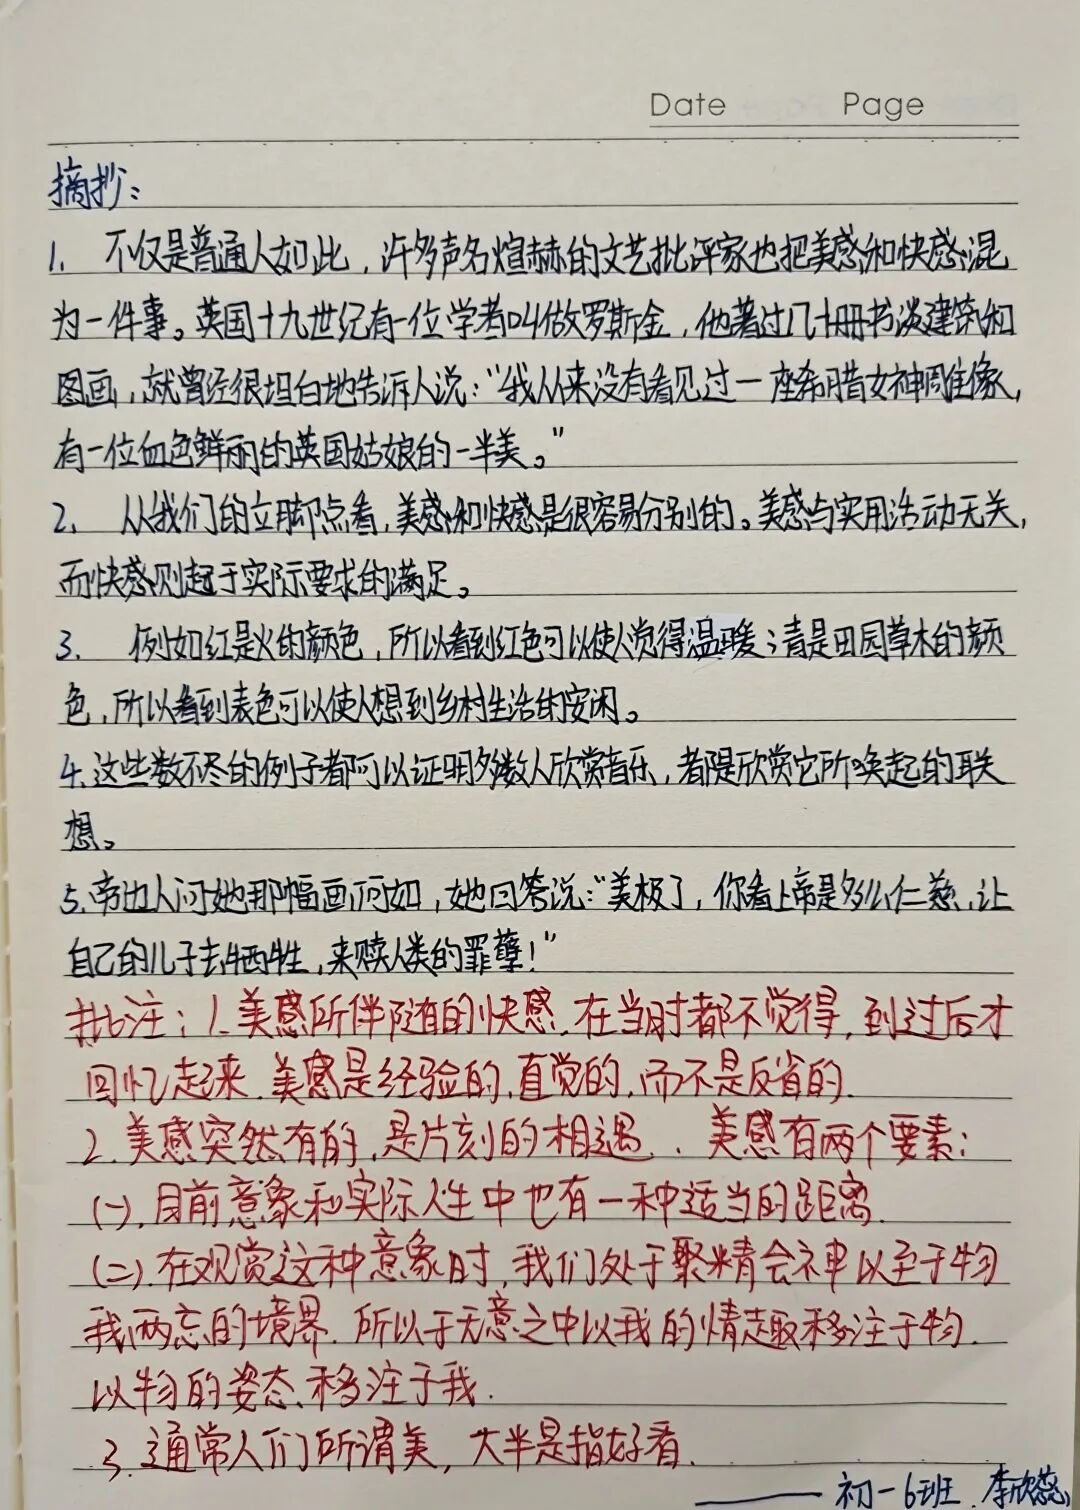 Date Page
摘抄：
1. 不仅是普通人如此，许多声名煊赫的文艺批评家也把美感和快感混
为一件事。英国十九世纪有一位学者叫做罗斯金，他著过几十册书谈建筑和
图画，就曾经很坦白地告诉人说：“我从来没有看见过一座希腊女神雕像，
有一位血色鲜丽的英国姑娘的一半美。”
2. 从我们的立脚点看，美感和快感是很容易分别的。美感与实用活动无关，
而快感则起于实际要求的满足。
3. 例如红是火的颜色，所以看到红色可以使人觉得温暖；青是田园草木的颜
色，所以看到表色可以使人想到乡村生活的安闲。
4.这些数不尽的例子都可以证明多数人欣赏音乐，都是欣赏它所唤起的联
想。
5.旁边人问她那幅画何如，她回答说：“美极了，你看上帝是多么仁慈，让
自己的儿子去牺牲，来赎人类的罪孽！”
批注：1.美感所伴随的快感，在当时都不觉得，到过后才
回忆起来.美感是经验的，直觉的，而不是反省的.
2.美感突然有的，是片刻的相遇.. 美感有两个要素：
(一).目前意象和实际人生中也有一种适当的距离.
(二).在观赏这种意象时，我们处于聚精会神以至于物
我两忘的境界.所以于无意之中以我的情趣移注于物.
以物的姿态移注于我.
3.通常人们所谓美，大半是指好看.
——初一6班.李欣蕊